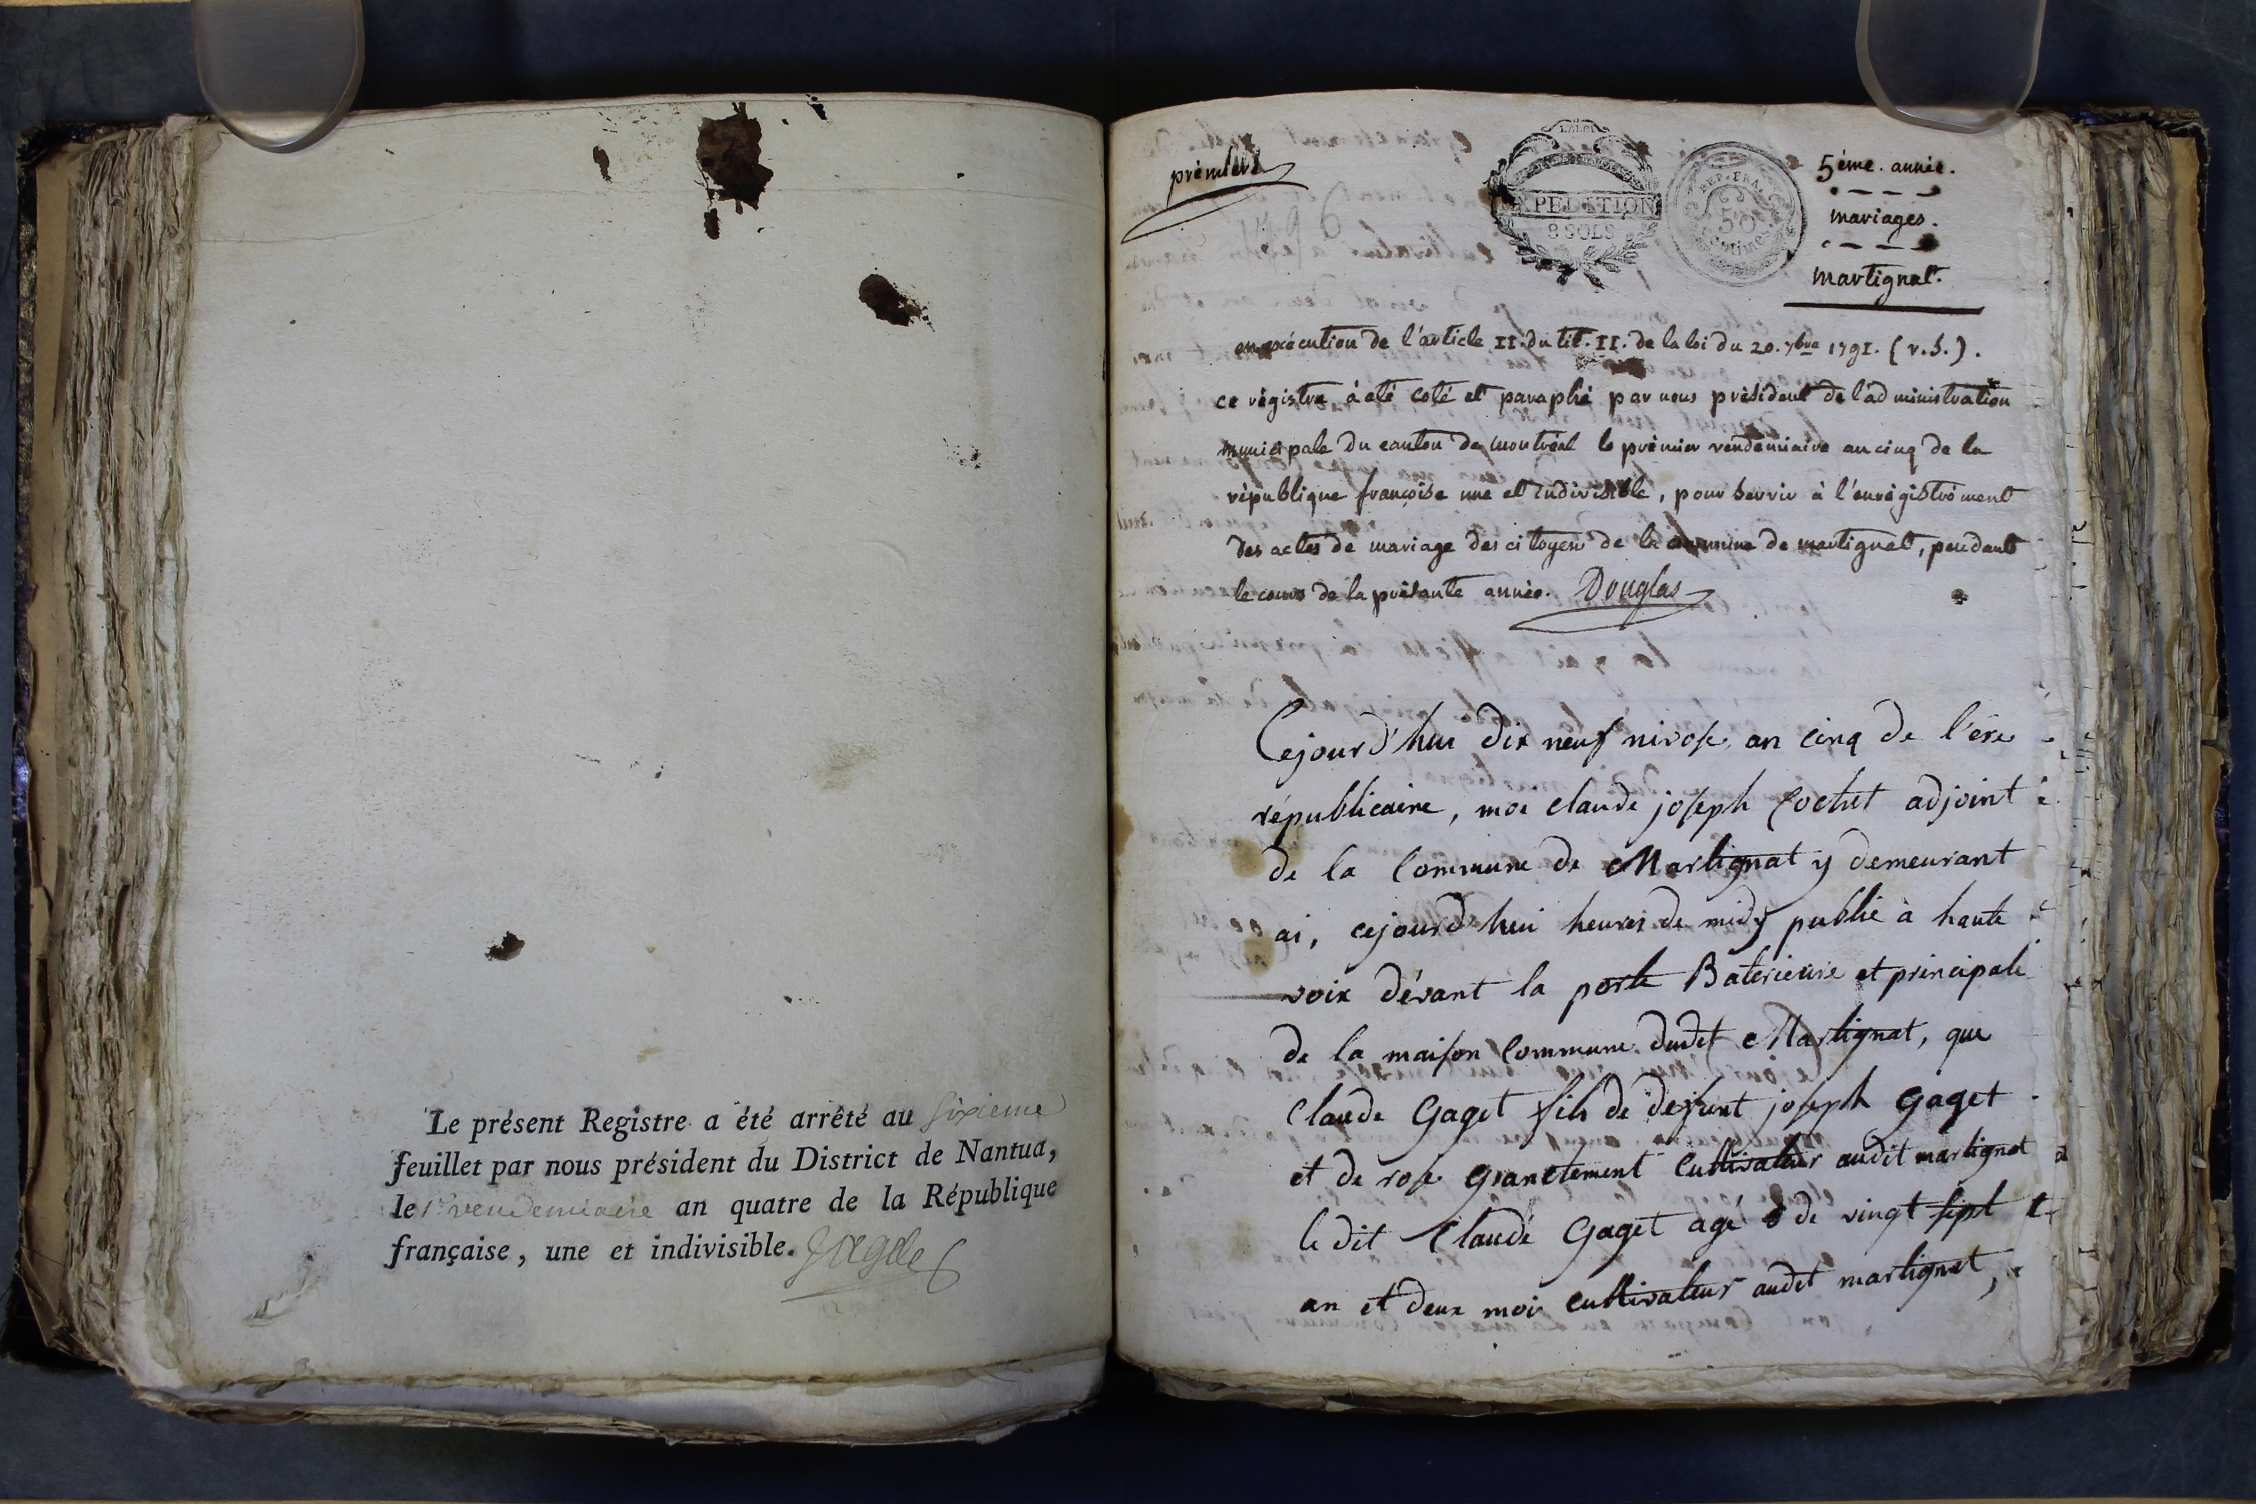 Le présent Registre a été arrêté au sixieme
feuillet par nous président du District de Nantua,
le 1er vendemiaire an quatre de la République
française, une et indivisible.
premiere
LA LOI
EXPEDITION
8 SOLS
REP. FRA.
50
centimes
5ème. année.
mariages.
martignat.
en exécution de l'article II. du tit. II. de la loi du 20. 7bre 1791. (v.s.).
ce régistre à eté coté et paraphé par nous président de l'administration
municipale du canton de montréal le prémier vendémiaire an cinq de la
république françoise une et indivisible, pour servir à l'enrégistrément
des actes de mariage des citoyens de la commune de martignat, pendant
le cours de la présente année. Douglas
Cejourd'hui dix neuf nivose an cinq de l'ére
républicaine, moi claude joseph Cochet adjoint
de la Commune de Martignat y demeurant
ai, cejourd'hui heures de midy publié à haute
voix dévant la porte Exterieure et principale
de la maison Commune dudit Martignat, que
Claude Gaget fils de defunt joseph Gaget
et de rose Granclement Cultivateur audit martignat
le dit Claude Gaget agé de vingt sept
an et deux mois Cultivateur audit martignat,